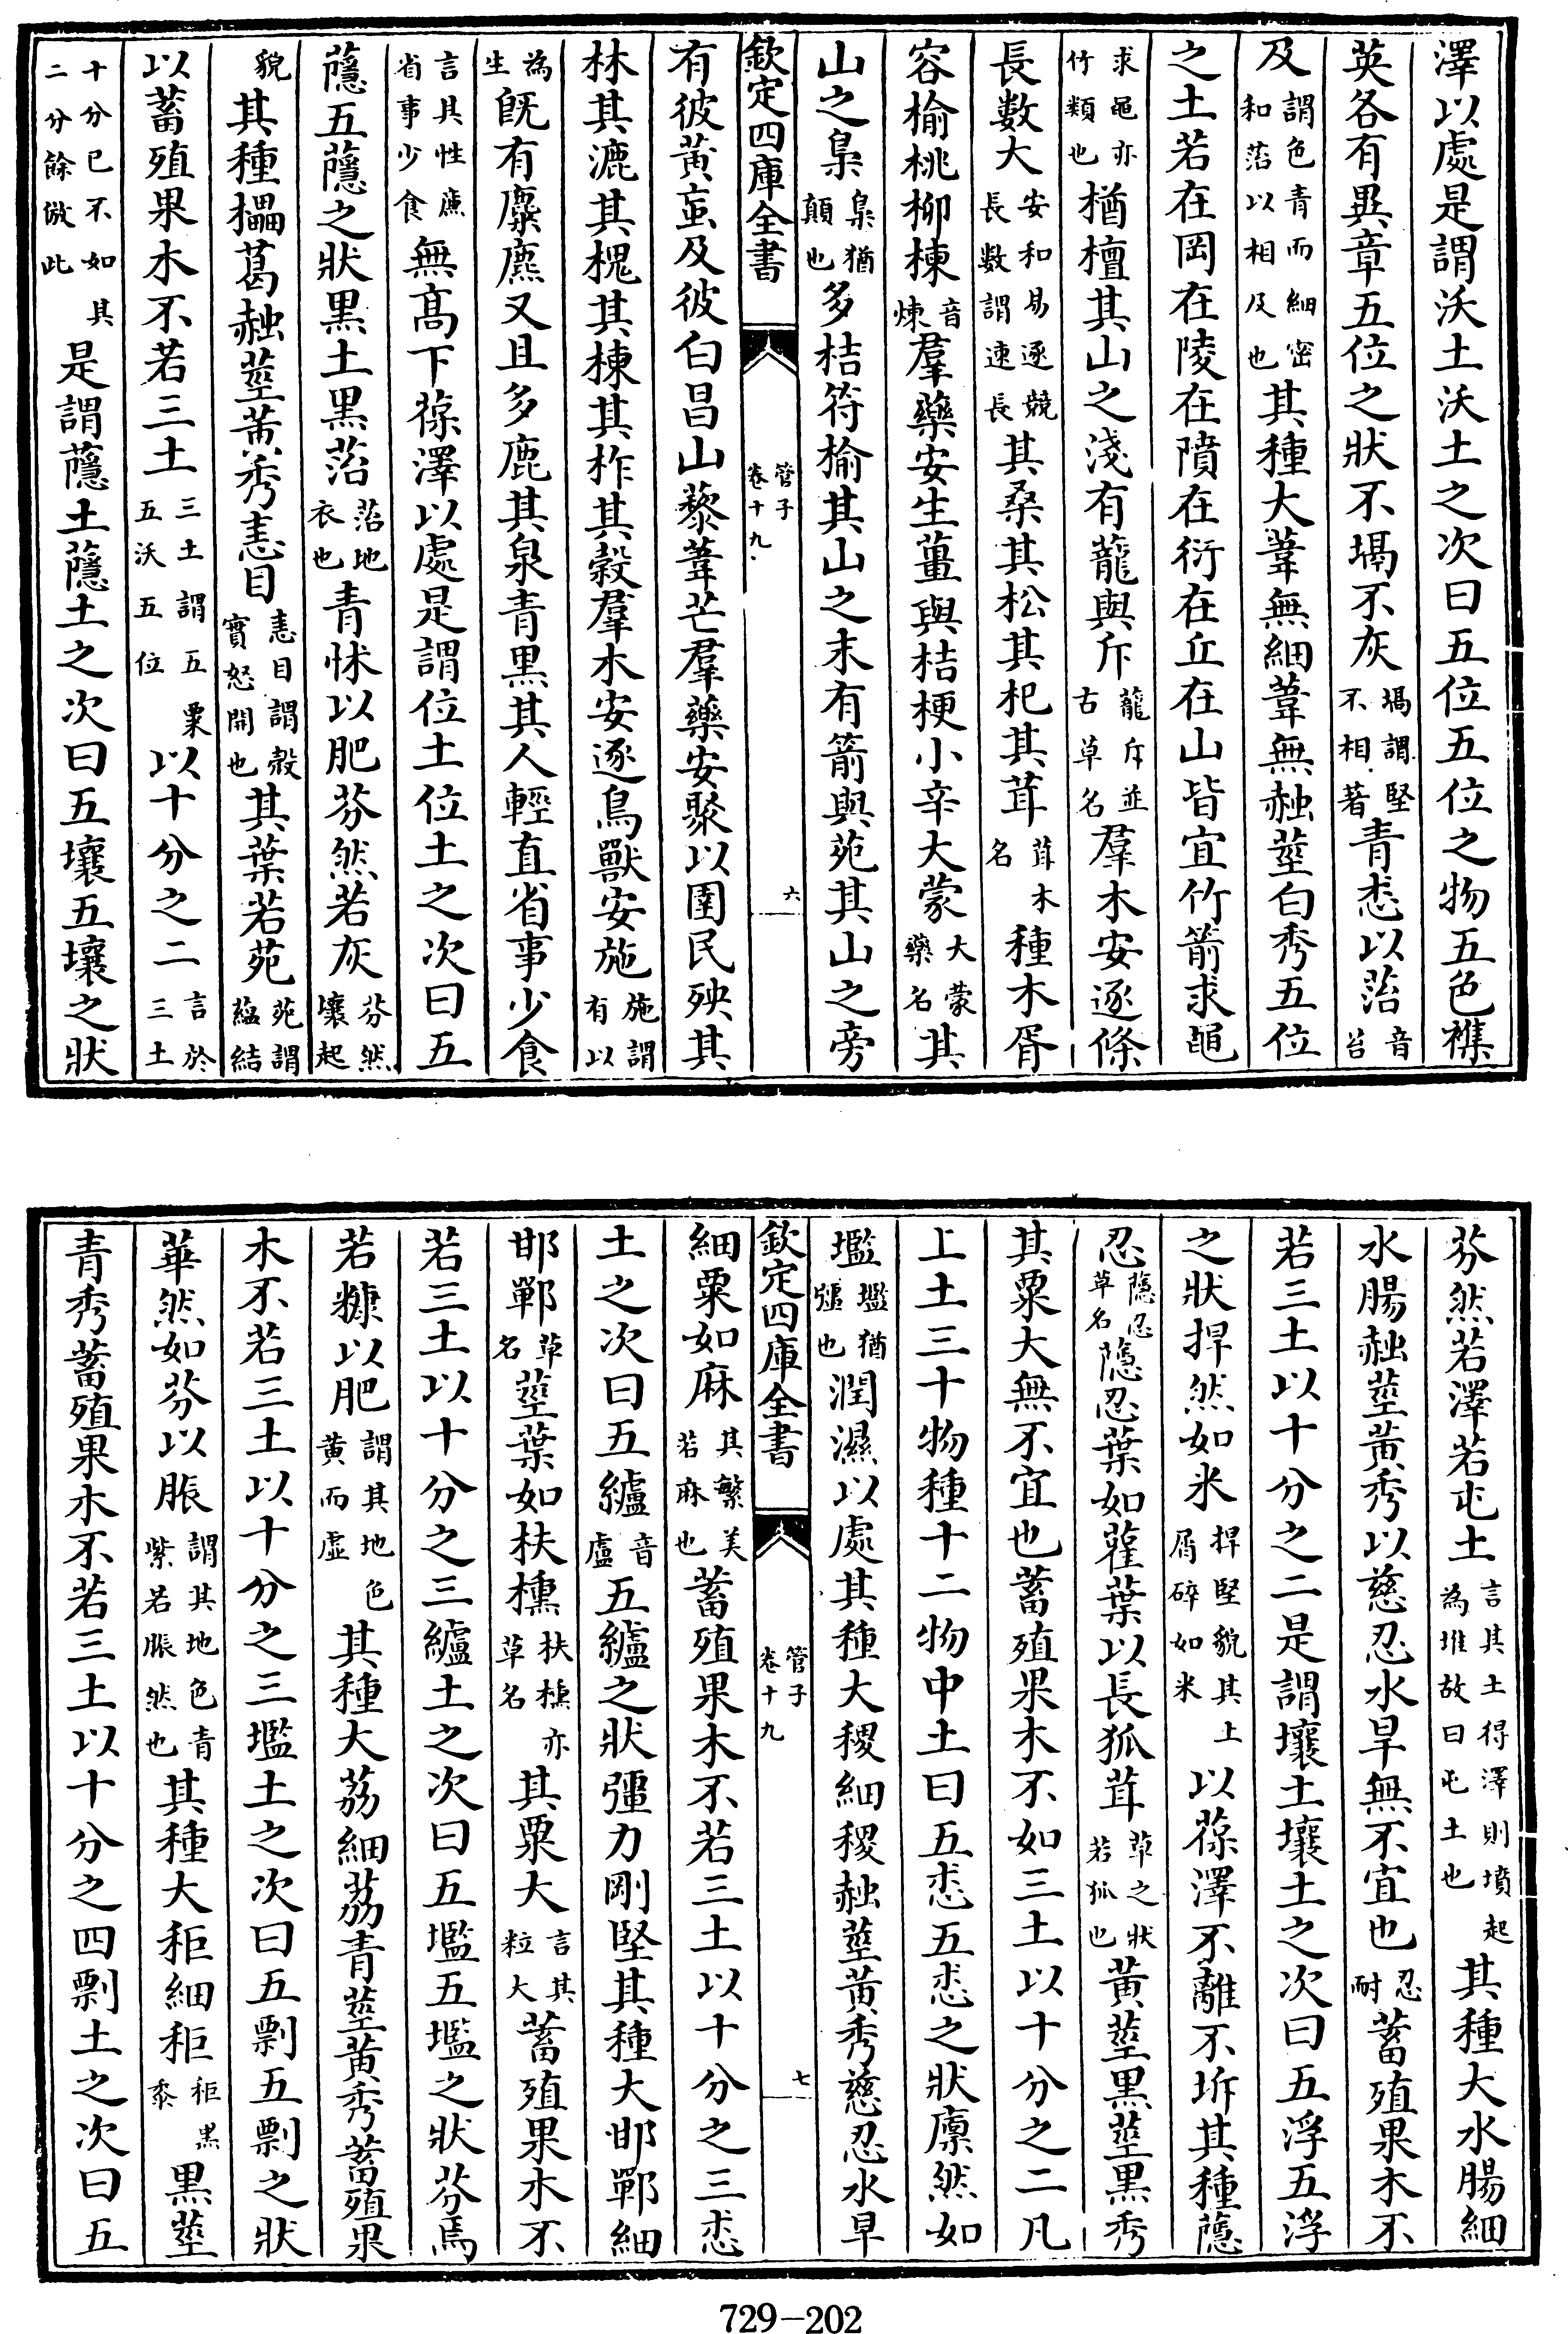 澤以處是謂沃土沃土之次曰五位五位之物五色襍
英各有異章五位之狀不塥不灰塥謂堅不相著青恙以菭音苔
及謂色青而細密和菭以相及也其種大葦無細葦無赨莖白秀五位
之土若在岡在陵在隫在衍在丘在山皆宜竹箭求黽
求黽亦竹類也楢檀其山之淺有蘢與斥蘢斥並古草名羣木安逐條
長數大安和易逐競長數謂速長其桑其松其杞其茸茸木名種木胥
容榆桃柳楝音煉羣藥安生薑與桔梗小辛大蒙大蒙藥名其
山之梟梟猶顛也多桔符榆其山之末有箭與苑其山之旁
欽定四庫全書
管子卷十九
六
有彼黄䖟及彼白昌山藜葦芒羣藥安聚以圉民殃其
林其漉其槐其楝其柞其榖羣木安逐鳥獸安施施謂有以
為生既有麋麃又且多鹿其泉青黒其人輕直省事少食
言其性廉省事少食無髙下葆澤以處是謂位土位土之次曰五
蘟五蘟之狀黒土黒菭菭地衣也青怵以肥芬然若灰芬然壤起
貌其種櫑葛赨莖黄秀恚目恚目謂榖實怒開也其葉若苑苑謂蘊結
以蓄殖果木不若三土三土謂五粟五沃五位以十分之二言於三土
十分已不如其二分餘倣此是謂蘟土蘟土之次曰五壤五壤之狀
芬然若澤若屯土言其土得澤則墳起為堆故曰屯土也其種大水腸細
水腸赨莖黄秀以慈忍水旱無不宜也忍耐蓄殖果木不
若三土以十分之二是謂壤土壤土之次曰五浮五浮
之狀捍然如米捍堅貌其上屑碎如米以葆澤不離不坼其種蘟
忍隐忍草名隐忍葉如雚葉以長狐茸草之狀若狐也黄莖黒莖黒秀
其粟大無不宜也蓄殖果木不如三土以十分之二凡
上土三十物種十二物中土曰五恙五恙之狀廩然如
壏壏猶壃也潤濕以處其種大稷細稷赨莖黄秀慈忍水旱
欽定四庫全書
管子卷十九
七
細粟如麻其繁美若麻也蓄殖果木不若三土以十分之三恙
土之次曰五纑音盧五纑之狀彊力剛堅其種大邯鄲細
邯鄲草名莖葉如扶櫄扶櫄亦草名其粟大言其粒大蓄殖果木不
若三土以十分之三纑土之次曰五壏五壏之狀芬焉
若糠以肥謂其地色黄而虚其種大荔細荔青莖黄秀蓄殖果
木不若三土以十分之三壏土之次曰五剽五剽之狀
華然如芬以脤謂其地色青紫若脤然也其種大秬細秬秬黒黍黒莖
青秀蓄殖果木不若三土以十分之四剽土之次曰五
729-202